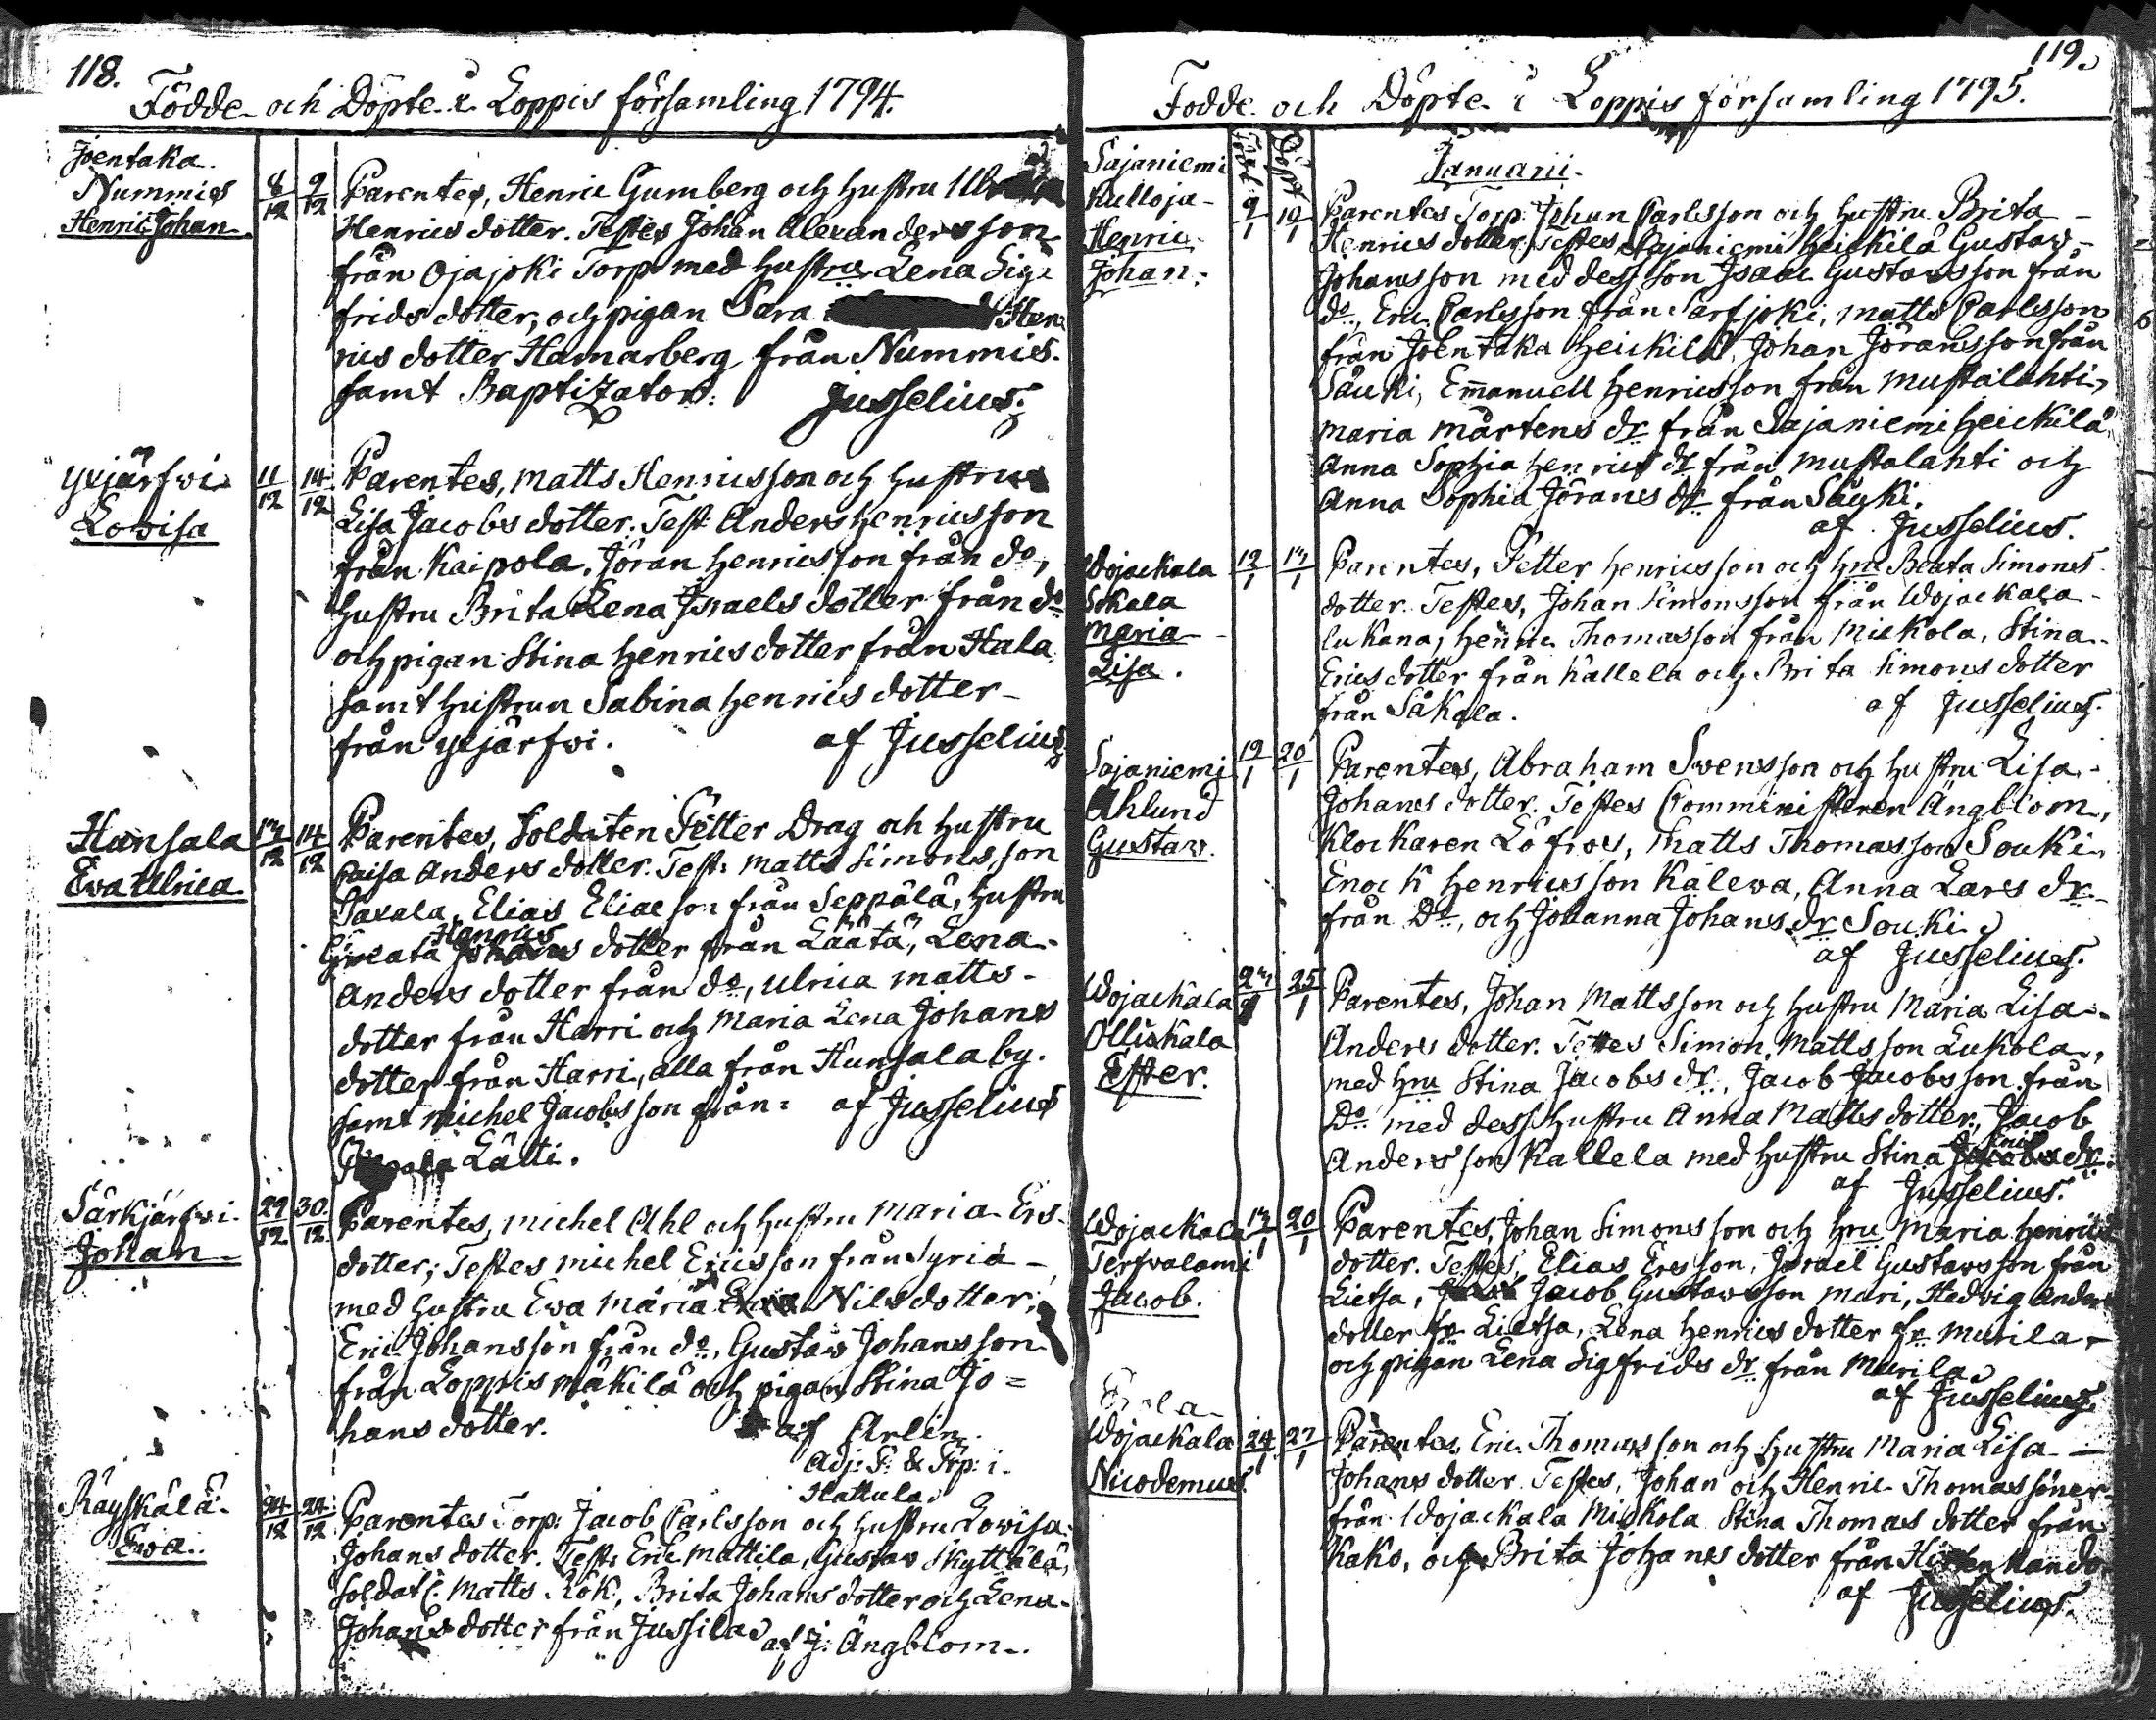 118.
Födde och Döpte i Loppis församling 1794.
Joentaka
Nummis
Henric Johan
8/12 9/12
Parentes, Henric Gumberg och hustru
Henrics dotter. Testes Johan Alexandersson
från Ojajoki Torp med hustru Lena Sig:
frids dotter, och pigan Sara Hen:
rics dotter Hamarberg från Nummis.
samt Baptizator. Jusselius.
Yxjärfwi
Lovisa
11/12 14/12
Parentes, Matts Henricsson och hustru
Lisa Jacobs dotter. Test. Anders Henricsson
från Kaipola, Jöran Henricsson från do,
hustru Brita Lena Israels dotter från do
och pigan Stina Henrics dotter från Hala
samt hustrun Sabina Henrics dotter
från Yxjärfwi. af Jusselius
Hunsala
Eva Ulrica
13/12 14/12
Parentes, Soldaten Petter Drag och hustru
Caisa Anders dotter. Test: Matts Simonsson
Saxala, Elias Eliae son från Seppälä, hustru
Henrics
Greata dotter från Läätä, Lena
Anders dotter från do, Ulrica Matts
dotter från Harri och Maria Lena Johans
dotter från Harri, alla från Hunsala by.
samt Michel Jacobsson från: af Jusselius
Lätti.
Särkjärfwi
Johan
29/12 30/12
Parentes, Michel Ahl och hustru Maria Ers
dotter; Testes Michel Ericsson från Syriä
med hustru Ewa Maria Nils dotter;
Eric Johansson från do, Gustaw Johansson
från Loppis Mäkilä och pigan Stina Jo=
hans dotter. af Arlin
Adj: P. & Pºp: i.
Hattula
Räyskälä
Ewa
24/12 24/12
Parentes Torp: Jacob Carlsson och hustru Lowisa
Johans dotter. Test: Eric Mattila, Gustav Skyttälä,
Soldat: Matts Rök, Brita Johans dotter och Lena
Johans dotter från Jussila af J: Ängblom
119.
Födde och Döpte i Loppis församling 1795.
Född Döpt
Januarii
Sajaniemi
Kulloja
Henric
Johan
9/1 10/1
Parentes Torp. Johan Carlsson och hustru Brita
Henrics dotter, Testes Sajaniemi Heickilä Gustav
Johansson med dess son Isaac Gustavsson från
do, Eric Carlsson från Särfjoki, Matts Carlsson
från Joentaka Heickilä, Johan Jöransson från
Säuki, Emanuell Henricsson från Mustalahti,
Maria Mårtens dr från Sajaniemi Heickilä
Anna Sophia Henrics dr från Mustalahti och
Anna Sophia Jörans dr från Säuki.
af Jusselius.
Wojackala
Såkala
Maria
Lisa
12/1 13/1
Parentes, Petter Henricsson och hru Beata Simons
dotter. Testes, Johan Simonsson från Wojackala
Lukana, Henric Thomasson från Mickola, Stina
Erics dotter från Kallela och Brita Simons dotter
från Såkala. af Jusselius.
Sajaniemi
Ahlund
Gustaw
19/1 20/1
Parentes, Abraham Swensson och hustru Lisa
Johans dotter. Testes Comministeren Ängblom,
Klockaren Löfros, Matts Thomasson Souki
Enock Henricsson Kalewa, Anna Lars dr
från Do, och Johanna Johans dr Souki
af Jusselius.
Wojackala
Ollickala
Ester.
23/1 25/1
Parentes, Johan Mattsson och hustru Maria Lisa
Anders dotter. Testes Simon Mattsson Lukola,
med hru Stina Jacobs dr, Jacob Jacobsson från
Do med dess hustru Anna Matts dotter, Jacob
Andersson Kallela med hustru Stina Erics dr
af Jusselius.
Wojackala
Terfwalami
Jacob.
13/1 20/1
Parentes, Johan Simonsson och hru Maria Henrics
dotter. Testes, Elias Ersson, Israel Gustavsson från
Lietsa, Jacob Gustavsson Mari, Hedvig Anders
dotter fr Lietsa, Lena Henrics dotter fr Murila
och pigan Lena Sigfrids dr från Murila
af Jusselius.
Wojackala
Nicodemus
24/1 27/1
Parentes Eric Thomasson och hustru Maria Lisa
Johans dotter Testes, Johan och Henric Thomassöner
från Wojackala Mickola Stina Thomas dotter från
Kako, och Brita Johans dotter från
af Jusselius.